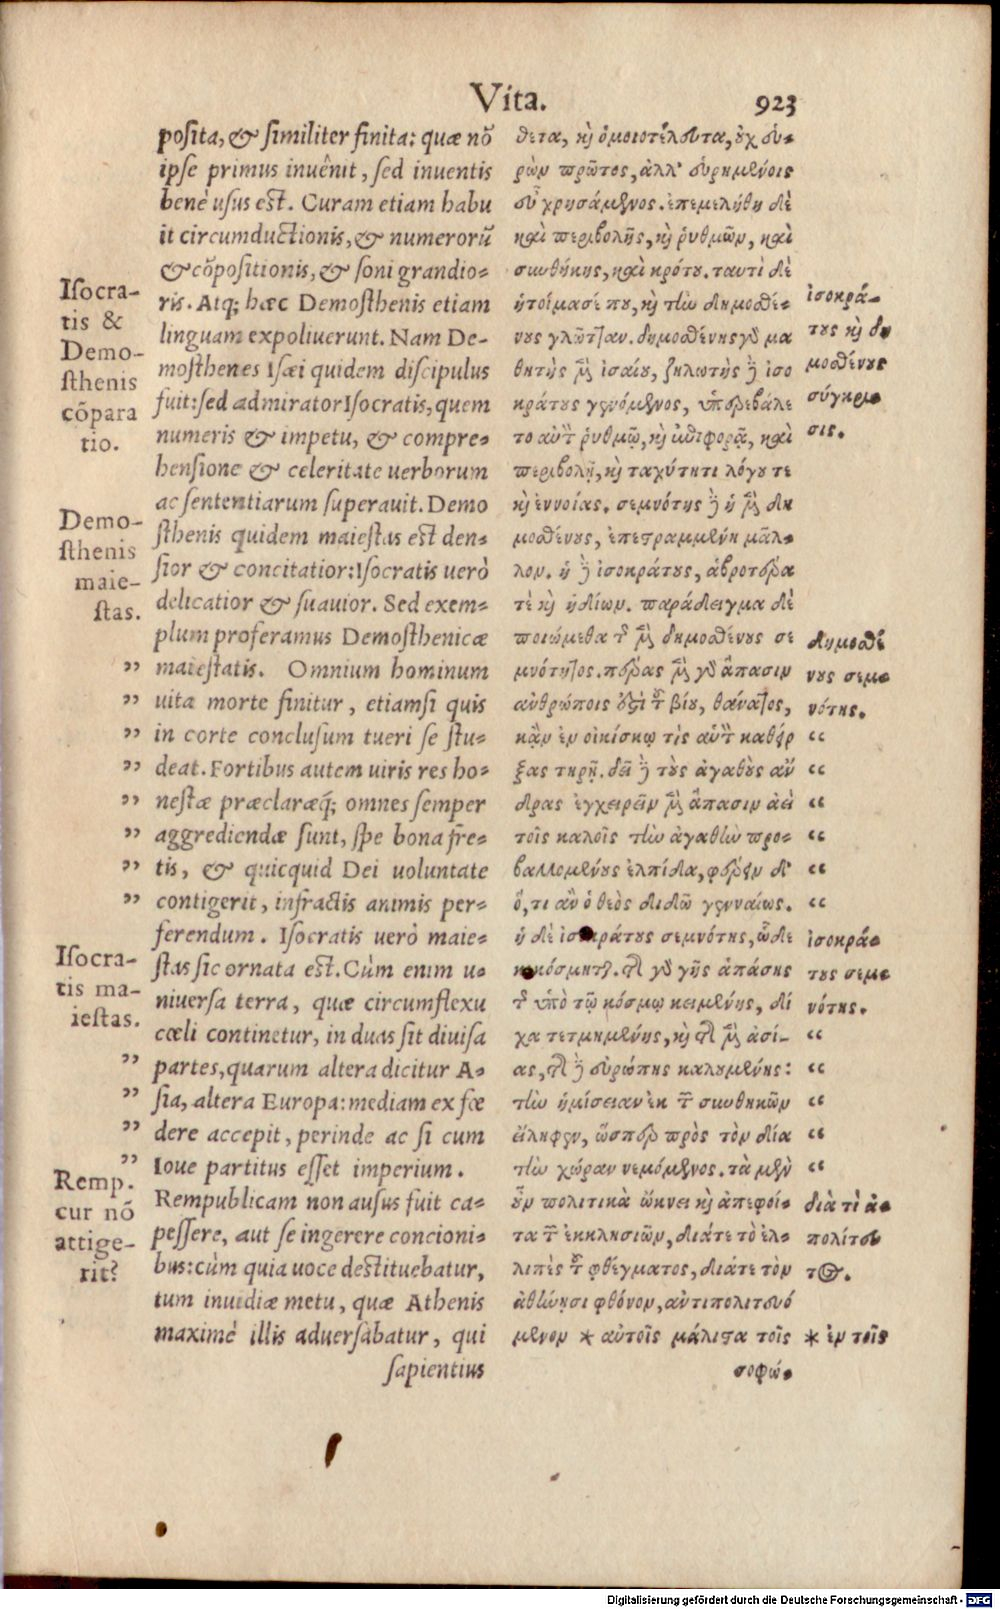 Vita.
923
posita, & similiter finita: quæ nō
ipse primus inuênit, sed inuentis
benè usus est. Curam etiam habu
it circumductionis, & numerorū
& cōpositionis, & soni grandio-
ris. Atq; hæc Demosthenis etiam
linguam expoliuerunt. Nam De-
mosthenes Isæi quidem discipulus
fuit: sed admirator Isocratis, quem
numeris & impetu, & compre-
hensione & celeritate uerborum
ac sententiarum superauit. Demo
sthenis quidem maiestas est den-
sior & concitatior: Isocratis uerò
delicatior & suauior. Sed exem-
plum proferamus Demosthenicæ
” maiestatis. Omnium hominum
” uita morte finitur, etiamsi quis
” in corte conclusum tueri se stu-
” deat. Fortibus autem uiris res ho-
” nestæ præclaræq́; omnes semper
” aggrediendæ sunt, spe bona fre-
” tis, & quicquid Dei uoluntate
” contigerit, infractis animis per-
ferendum. Isocratis uerò maie-
stas sic ornata est. Cùm enim u-
niuersa terra, quæ circumflexu
cœli continetur, in duas sit diuisa
” partes, quarum altera dicitur A-
” sia, altera Europa: mediam ex fœ
” dere accepit, perinde ac si cum
” Ioue partitus esset imperium.
Rempublicam non ausus fuit ca-
pessere, aut se ingerere concioni-
bus: cùm quia uoce destituebatur,
tum inuidiæ metu, quæ Athenis
maximè illis aduersabatur, qui
sapientius
Isocra-
tis &
Demo-
sthenis
cōpara
tio.
Demo-
sthenis
maie-
stas.
Isocra-
tis ma-
iestas.
Remp.
cur nō
attige-
rit?
θετα, κὶ ὁμοιοτέλουτα, οὐχ εὑ-
ρὼν πρῶτος, ἀλλ’ εὑρημένοις
εὖ χρησάμενος. ἐπεμελήθη δὲ
καὶ περιβολῆς, κὶ ῥυθμῶν, καὶ
συνθήκης, καὶ κρότου. ταυτὶ δὲ
ἡτοίμασέ που, κὶ τὼ δημοσθέ-
νους γλῶτταν. δημοσθένης γὸ μα
θητὴς μὲν ἰσαίου, ζηλωτὴς δὲ ἰσο
κράτους γενόμενος, ὑπερεβάλε
το αὐτὸν ῥυθμῷ, κὶ ἐπιφορᾷ, καὶ
περιβολῇ, κὶ ταχύτητι λόγου τε
κὶ ἐννοίας. σεμνότης δὲ ἡ μὲν δη
μοσθένους, ἐπεστραμμένη μᾶλ-
λον. ἡ δὲ ἰσοκράτους, ἁβροτέρα
τὲ κὶ ἡδίων. παράδειγμα δὲ
ποιώμεθα τῆς μὲν δημοσθένους σε
μνότητος. πέρας μὲν γὸ ἅπασιν
ἀνθρώποις ἐστὶ τοῦ βίου, θάνατος,
κἂν ἐν οἰκίσκῳ τὶς αὑτὸν καθείρ “
ξας τηρῇ. δεῖ δὲ τοὺς ἀγαθοὺς ἄν “
δρας ἐγχειρεῖν μὲν ἅπασιν ἀεὶ “
τοῖς καλοῖς τὼ ἀγαθὼ προ- “
βαλλομένους ἐλπίδα, φέρειν δ’ “
ὅ, τι ἂν ὁ θεὸς διδῶ γενναίως. “
ἡ δὲ ἰσοκράτους σεμνότης, ὧδε
κεκόσμηται. τῆς γὸ γῆς ἁπάσης
τῆς ὑπὸ τῷ κόσμῳ κειμένης, δί
χα τετμημένης, κὶ τῆς μὲν ἀσί- “
ας, τῆς δὲ εὐρώπης καλουμένης: “
τὼ ἡμίσειαν ἐκ τῶν συνθηκῶν “
εἴληφεν, ὥσπερ πρὸς τὸν δία “
τὼ χώραν νεμόμενος. τὰ μὲν “
οὖν πολιτικὰ ὤκνει κὶ ἀπεφοί-
τα τῶν ἐκκλησιῶν, διάτε τὸ ἐλ-
λιπὲς τοῦ φθέγματος, διάτε τὸν
ἀθήνησι φθόνον, ἀντιπολιτευό
μενον * αὐτοῖς μάλιστα τοῖς
σοφώ-
ἰσοκρά-
τους κὶ δη
μοσθένους
σύγκρι-
σις.
δημοσθέ
νους σεμ-
νότης.
ἰσοκρά-
τους σεμ-
νότης.
διὰ τί ἀ-
πολίτευ
τος.
* ἐν τοῖς
Digitalisierung gefördert durch die Deutsche Forschungsgemeinschaft - DFG